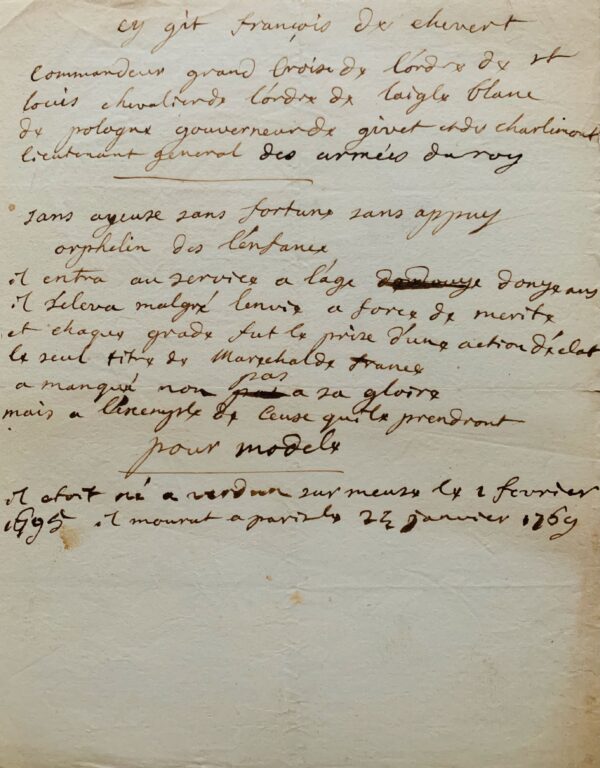 cy git françois de chevert
commandeur grand Croix de l'ordre de st
louis chevalier de l'ordre de laigle blanc
de pologne gouverneur de givet et de charlimont
lieutenant general des armées du roy
sans ayeux sans fortune sans appuy
orphelin des l'enfance
il entra au service a l'âge donze ans
il s'eleva malgré l'envie a force de merite
et chaque grade fut le prix d'une action d'éclat
le seul titre de Marechal de france
a manqué non pas a sa gloire
mais a l'exemple de ceux qui le prendront
pour modele
il etoit né a verdun sur meuse le 2 fevrier
1695 il mourut a paris le 24 janvier 1769